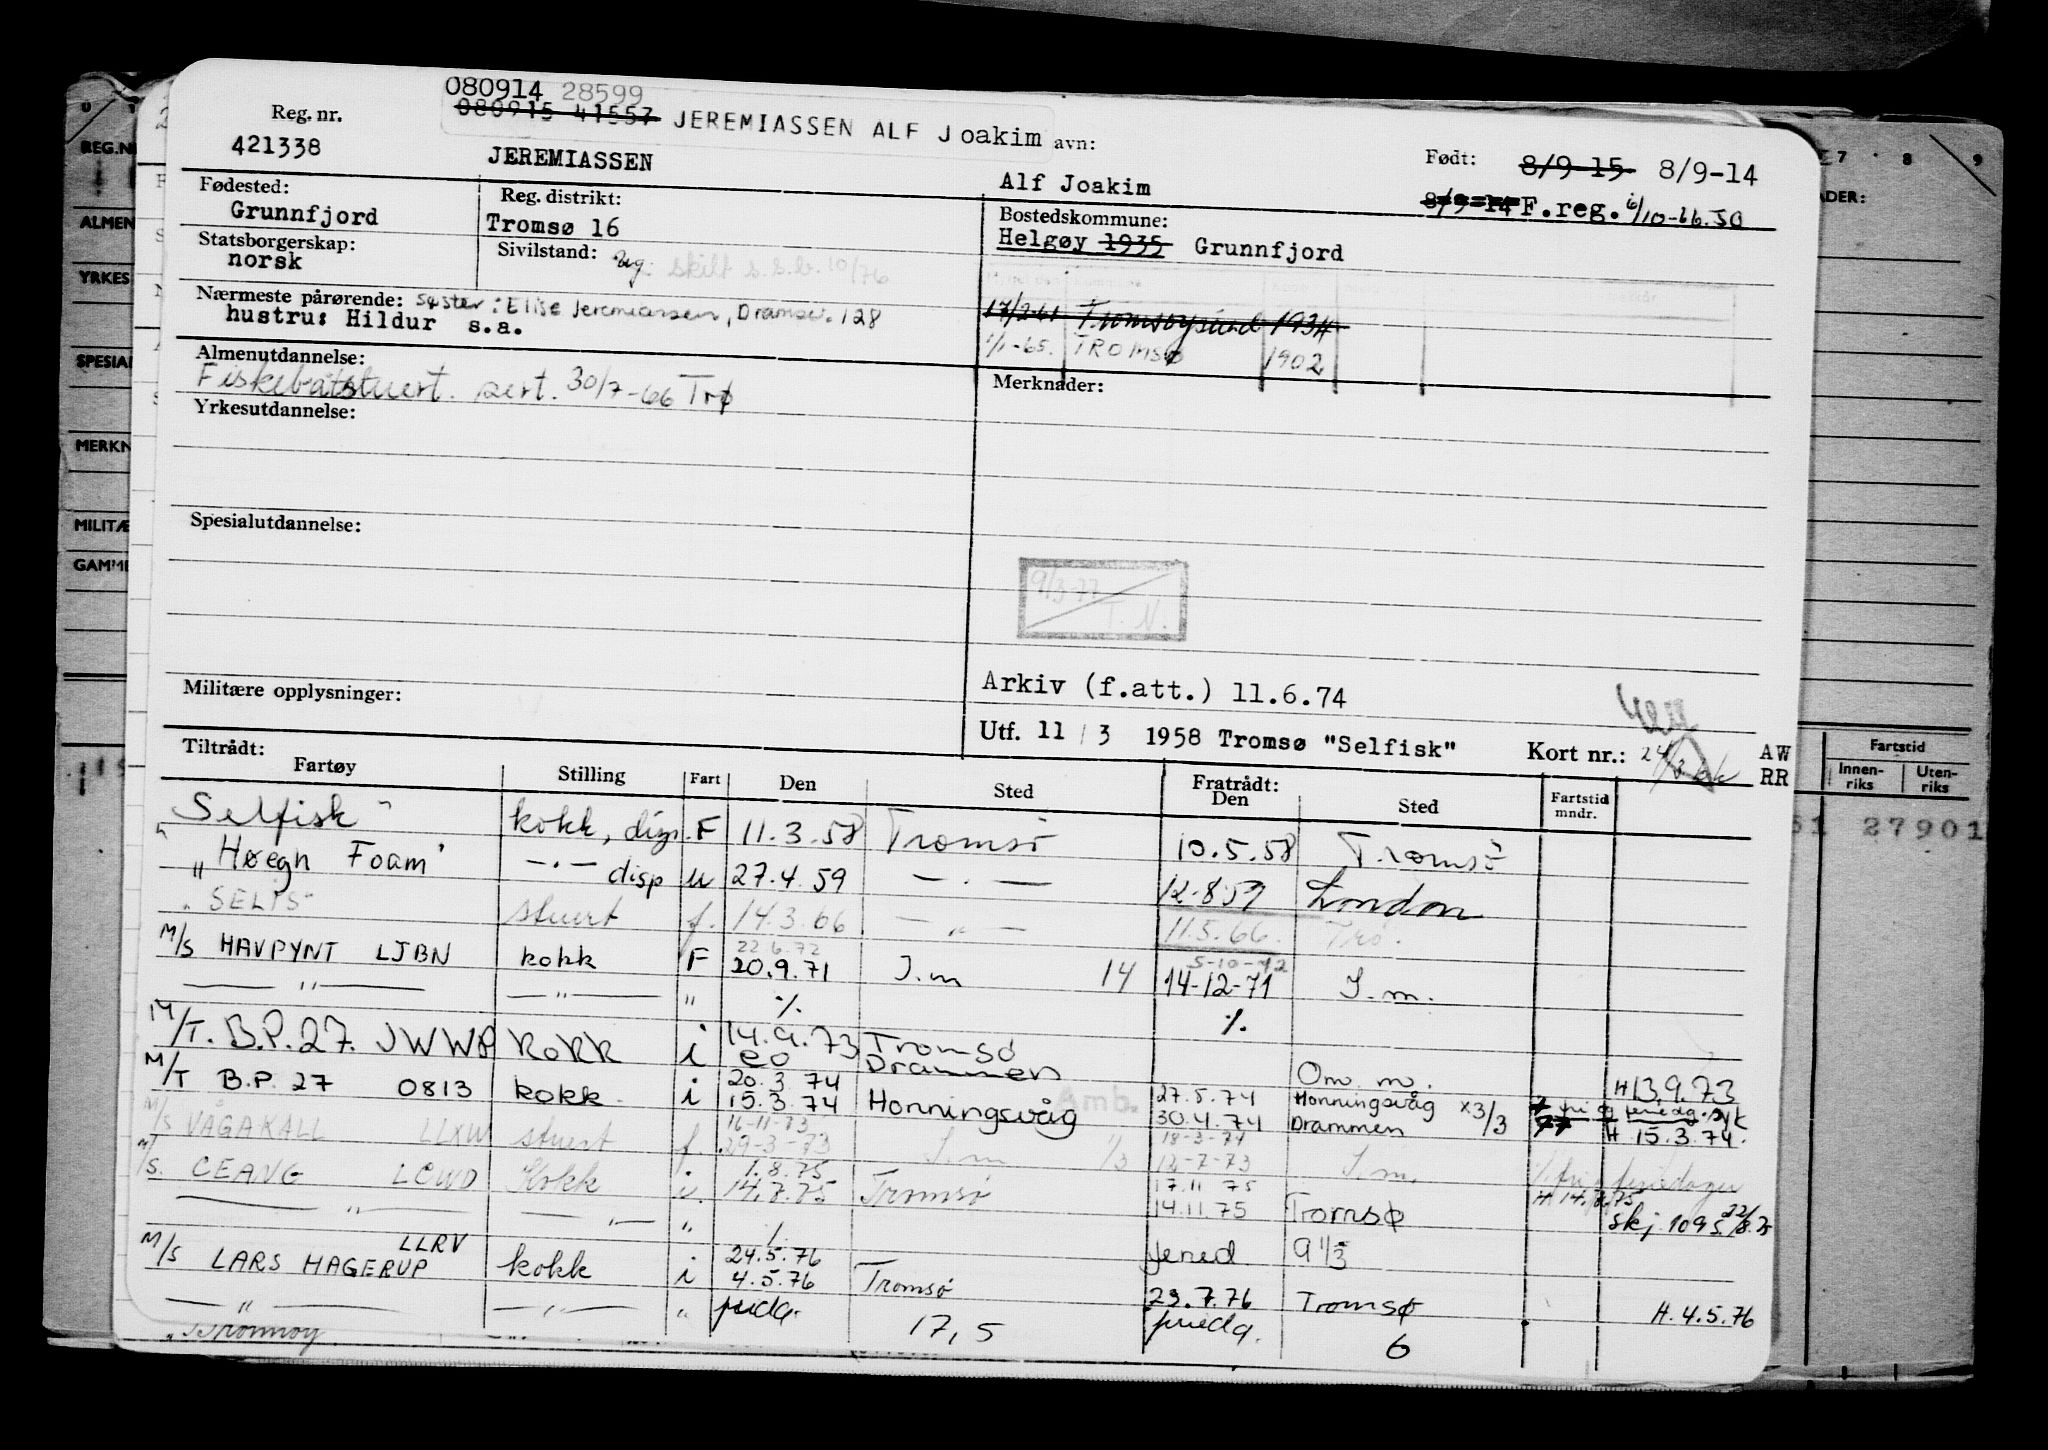 080914 28599
080915 41557 JEREMIASSEN ALF Joakim avn:
Reg. nr.
421338
JEREMIASSEN
Alf Joakim
Født: 8/9-15 8/9-14
8/9-14 F.reg. 6/10-66. SO
Fødested:
Grunnfjord
Reg. distrikt:
Tromsø 16
Bostedskommune:
Helgøy 1935 Grunnfjord
Statsborgerskap:
norsk
Sivilstand: ug. skilt s.s.b. 10/76
Nærmeste pårørende: søster: Elise Jeremiassen, Dramsv. 128
hustru: Hildur s.a.
17/2-61 Tromsøysund 1934
1/1-65. TROMSØ 1902
Almenutdannelse:
Fiskebåtstuert. sert. 30/7-66 Trø
Merknader:
Yrkesutdannelse:
Spesialutdannelse:
9/3-77
T. N.
Militære opplysninger:
Arkiv (f.att.) 11.6.74
Utf. 11 / 3 1958 Tromsø "Selfisk"
Kort nr.:
AW
RR
Tiltrådt:
Fartøy Stilling Fart Den Sted Fratrådt: Den Sted Fartstid mndr.
"Selfisk" kokk, disp. F 11.3.58 Tromsø 10.5.58 Tromsø
"Høegh Foam" — . — disp u 27.4.59 — . — 12.8.59 London
"SELIS" stuert f. 14.3.66 — " — 11.5.66. Trø.
22.6.72 5-10-72
M/S HAVPYNT LJBN kokk F 20.9.71 J.m 14 14-12-71 J.m.
— " — — " — " % %
M/T. B.P. 27. JWWP kokk i 14.9.73 Tromsø
eo Drammen Om. m. H 13.9.73
20.3.74 27.5.74 Honningsvåg x3/3
M/T B.P. 27 0813 kokk i 15.3.74 Honningsvåg 30.4.74 Drammen H 15.3.74.
Amb.
16-11-73 18-3-74
M/S VÅGAKALL LLXW stuert f. 29-3-73 J.m 1/3 12-7-73 J.m.
1.8.75 17.11 75
M/S. CEANG LCWD Kokk i. 14.7.75 Tromsø 14.11.75 Tromsø skj 1095 22/8.75
— " — — " — " % feried. 9 1/3
LLRV 24.5.76
M/S LARS HAGERUP kokk i 4.5.76 Tromsø 23.7.76 Tromsø H. 4.5.76
— " — — " — " 17,5 6
"Brønnøy
REG.NR
ALMEN
YRKES
SPESIAL
MERKN
MILITÆ
GAMME
7 8 9
ADER:
Fartstid
Innen-riks Uten-riks
51 27901